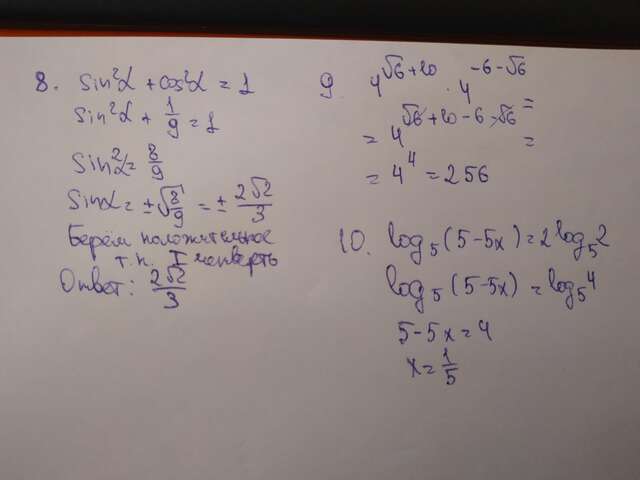 8. sin²α + cos²α = 1
sin²α + 1/9 = 1
sin²α = 8/9
sinα = ±√8/9 = ± 2√2/3
Берём положительное
т.к. I четверть
Ответ: 2√2/3
9 4^(√6+20) · 4^(-6-√6) =
= 4^(√6+20-6-√6) =
= 4^4 = 256
10. log₅(5-5x) = 2log₅2
log₅(5-5x) = log₅4
5-5x = 4
x = 1/5